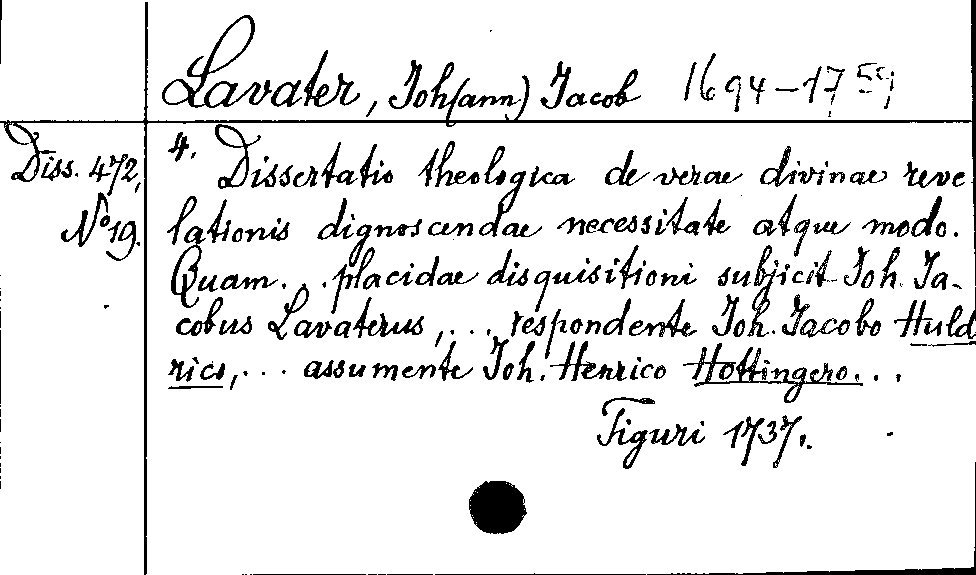 Lavater, Joh(ann) Jacob 1694-1759
Diss. 472,
No 19.
4. Dissertatio theologica de verae divinae reve
lationis dignoscendae necessitate atque modo.
Quam... placidae disquisitioni subjicit Joh. Ja-
cobus Lavaterus,... respondente Joh. Jacobo Huld
rico,... assumente Joh. Henrico Hottingero...
Tiguri 1737.